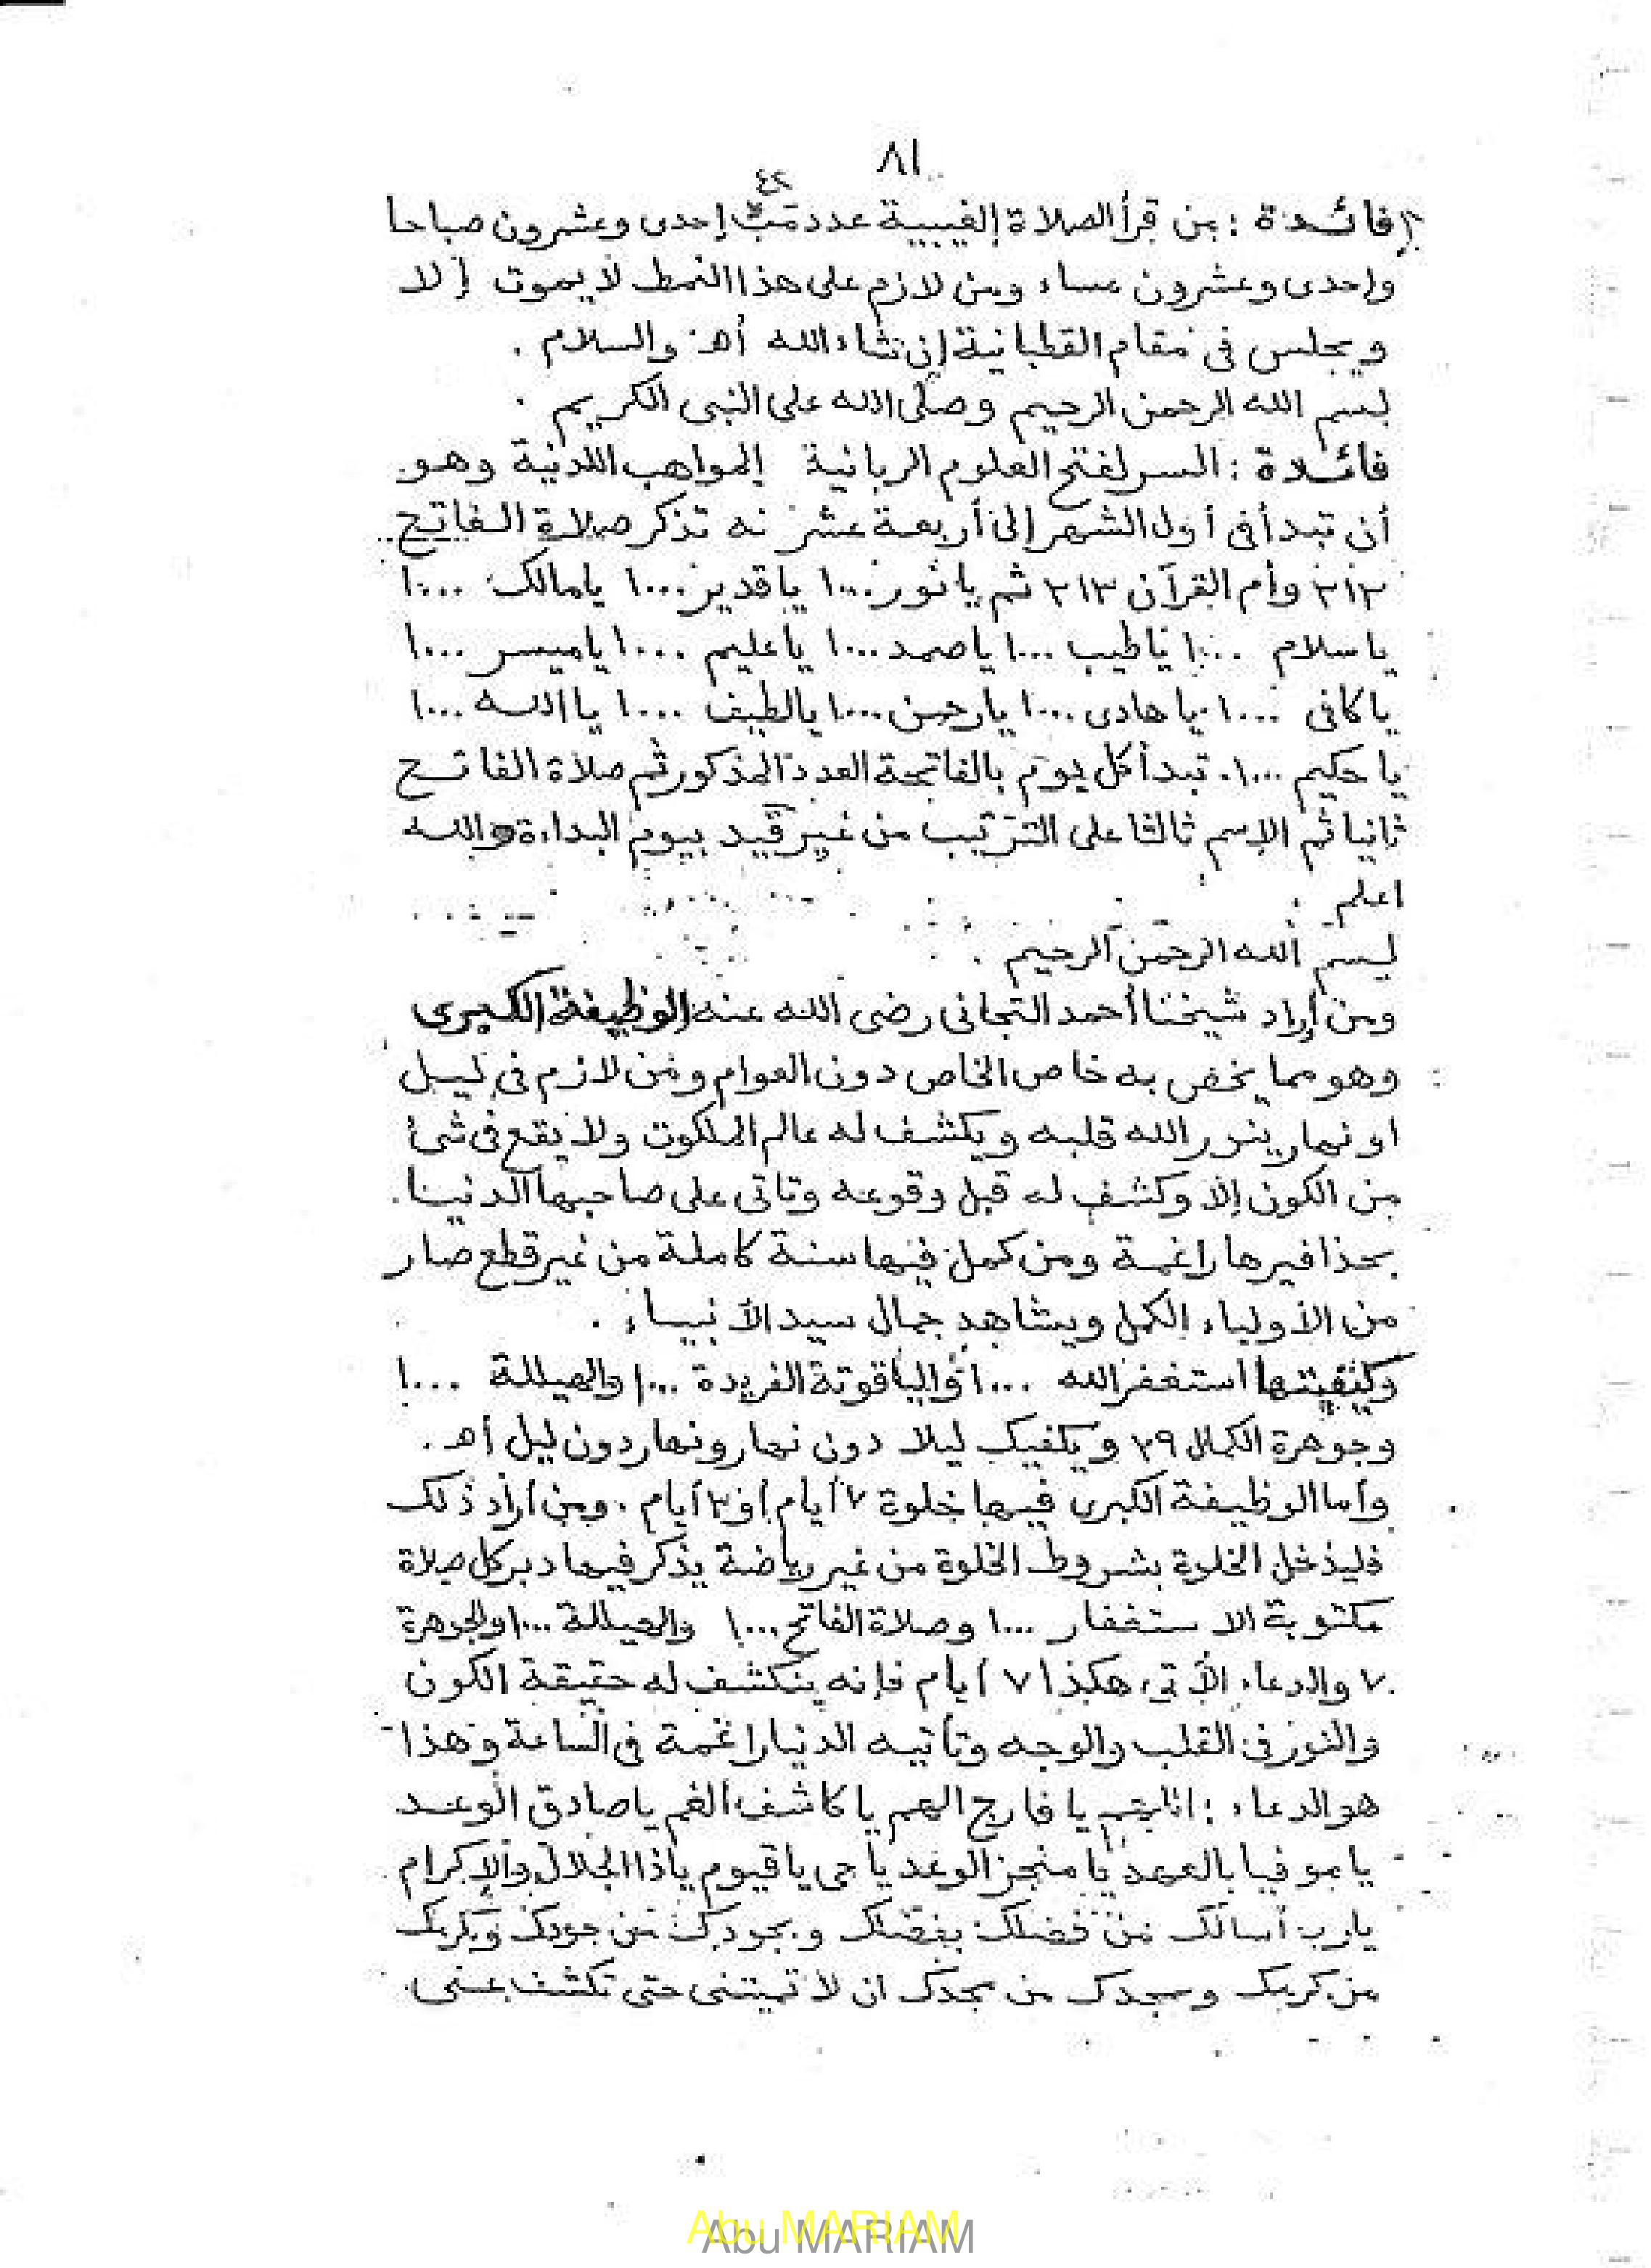 ٨١
٤٢
فائدة : من قرأ الصلاة الغيبية عدد إحدى وعشرون صباحا
وإحدى وعشرون مساء ومن لازم على هذا النمط لا يموت إلا
ويجلس فى مقام القطبانية إن شاء الله أهـ والسلام .
بسم الله الرحمن الرحيم وصلى الله على النبى الكريم .
فائدة : السر لفتح العلوم الربانية المواهب اللدنية وهو
أن تبدأ فى أول الشهر إلى أربعة عشر تذكر صلاة الفاتح
٣١٣ وأم القرآن ٣١٣ ثم يا نور ١٠٠٠ يا قدير ١٠٠٠ يا مالك ١٠٠٠
يا سلام ١٠٠٠ يا طيب ١٠٠٠ يا صمد ١٠٠٠ يا عليم ١٠٠٠ يا ميسر ١٠٠٠
يا كافى ١٠٠٠ يا هادى ١٠٠٠ يا رحمن ١٠٠٠ يا لطيف ١٠٠٠ يا الله ١٠٠٠
يا حكيم ١٠٠٠. تبدأ كل يوم بالفاتحة العدد المذكور ثم صلاة الفاتح
ثانيا ثم الإسم ثالثا على الترتيب من غير قيد بيوم البداءة والله
اعلم .
بسم الله الرحمن الرحيم .
ومن أراد شيخنا أحمد التجانى رضى الله عنه الوظيفة الكبرى
وهو مما يخص به خاص الخاص دون العوام ومن لازم فى ليل
او نهار ينور الله قلبه ويكشف له عالم الملكوت ولا يقع فى شئ
من الكون إلا وكشف له قبل وقوعه وتاتى على صاحبها الدنيا
بحذافيرها راغمة ومن كمل فيها سنة كاملة من غير قطع صار
من الأولياء الكمل ويشاهد جمال سيد الأنبياء .
وكيفيتها استغفر الله ١٠٠٠ والياقوتة الفريدة ١٠٠٠ والهيللة ١٠٠٠
وجوهرة الكمال ٧٩ ويكفيك ليلا دون نهار ونهار دون ليل أهـ .
وأما الوظيفة الكبرى فيها خلوة ٧ أيام أو ٣ أيام . ومن أراد ذلك
فليدخل الخلوة بشروط الخلوة من غير رياضة يذكر فيها دبر كل صلاة
مكتوبة الاستغفار ١٠٠٠ وصلاة الفاتح ١٠٠٠ والهيللة ١٠٠٠ والجوهرة
٧٠ والدعاء الآتى هكذا ٧ أيام فإنه ينكشف له حقيقة الكون
والنور فى القلب والوجه وتأتيه الدنيا راغمة فى الساعة وهذا
هو الدعاء : اللهم يا فارج الهم يا كاشف الغم يا صادق الوعد
يا موفيا بالعهد يا منجز الوعد يا حى يا قيوم يا ذا الجلال والإكرام
يا رب أسالك من فضلك بفضلك وبجودك من جودك وبكرمك
من كرمك وبمجدك من مجدك ان لا تميتنى حتى تكشف عنى
Abu MARIAM